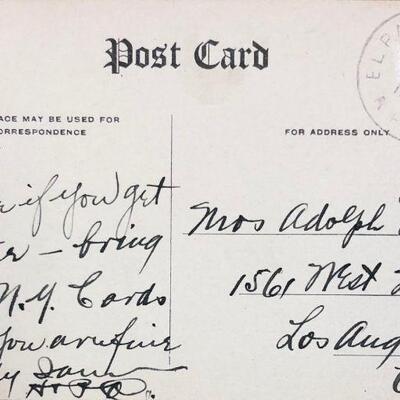 Post Card
ACE MAY BE USED FOR
ORRESPONDENCE
FOR ADDRESS ONLY
ELPA
if you get
– bring
N.Y. Cards
you are fine
Mrs Adolph
1561 West
Los Ang